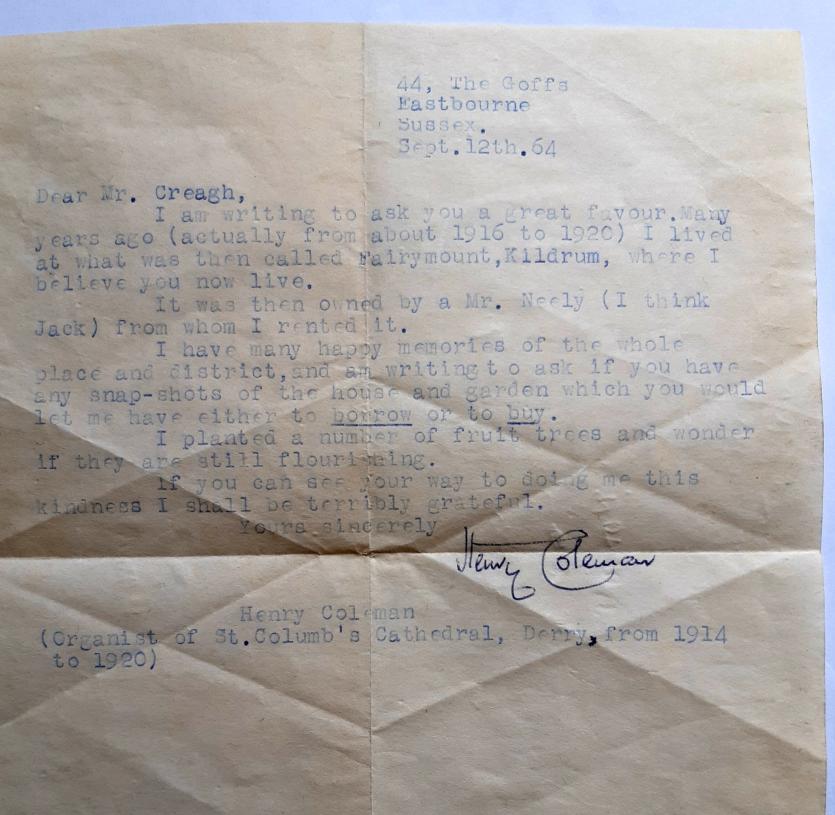 44, The Goffs
Eastbourne
Sussex.
Sept.12th.64
Dear Mr. Creagh,
I am writing to ask you a great favour.Many
years ago (actually from about 1916 to 1920) I lived
at what was then called Fairymount,Kildrum, where I
believe you now live.
It was then owned by a Mr. Neely (I think
Jack) from whom I rented it.
I have many happy memories of the whole
place and district,and am writing to ask if you have
any snap-shots of the house and garden which you would
let me have either to borrow or to buy.
I planted a number of fruit trees and wonder
if they are still flourishing.
If you can see your way to doing me this
kindness I shall be terribly grateful.
Yours sincerely
Henry Coleman
Henry Coleman
(Organist of St.Columb's Cathedral, Derry, from 1914
to 1920)